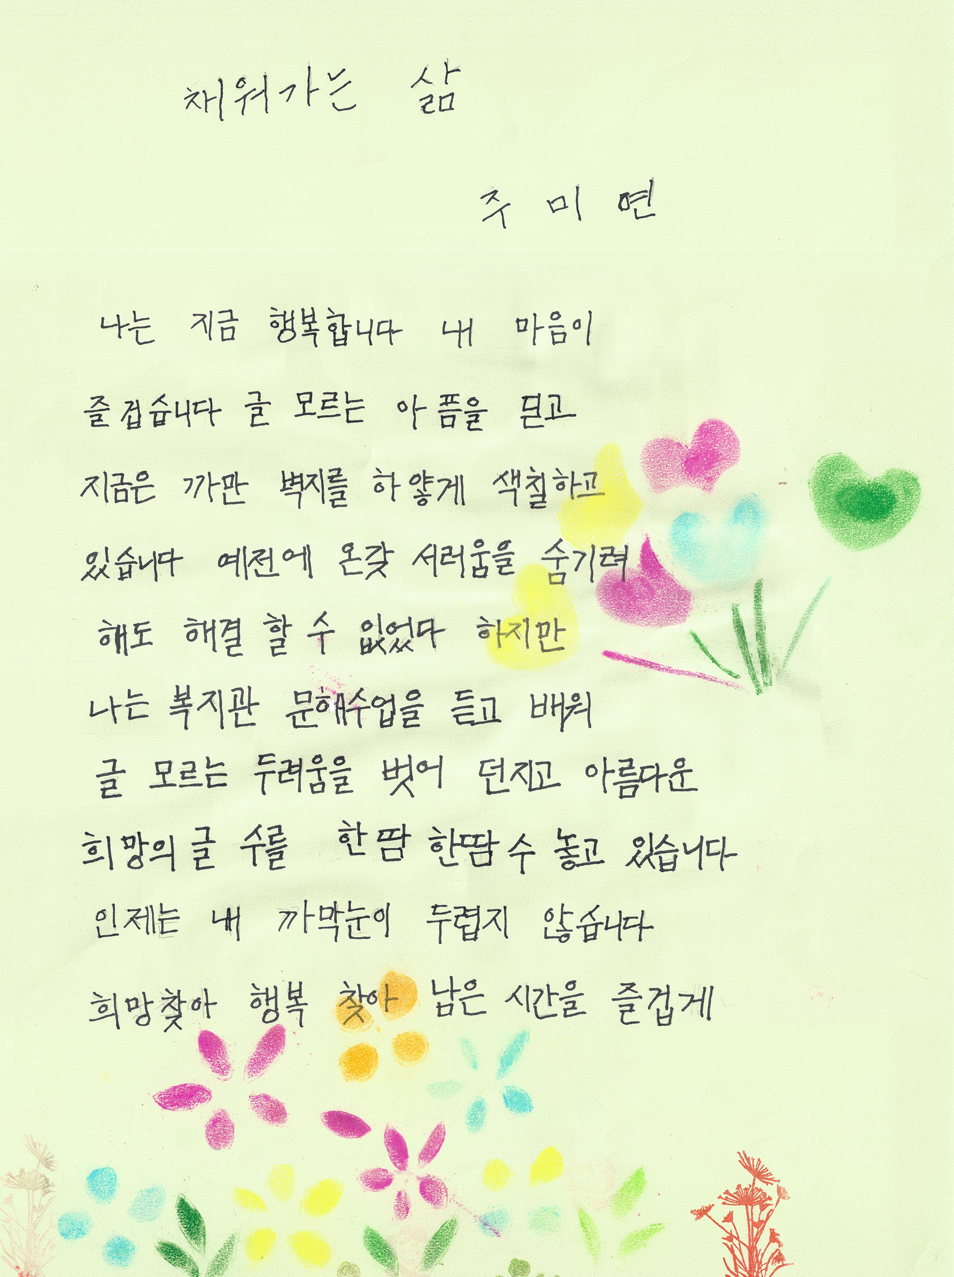 채워가는 삶
주미연
나는 지금 행복합니다 내 마음이
즐겁습니다 글 모르는 아픔을 딛고
지금은 까만 벽지를 하얗게 색칠하고
있습니다 예전에 온갖 서러움을 숨기려
해도 해결 할 수 없었다 하지만
나는 복지관 문해수업을 듣고 배워
글 모르는 두려움을 벗어 던지고 아름다운
희망의 글 수를 한땀 한땀 수 놓고 있습니다
인제는 내 까막눈이 두렵지 않습니다
희망찾아 행복 찾아 남은 시간을 즐겁게